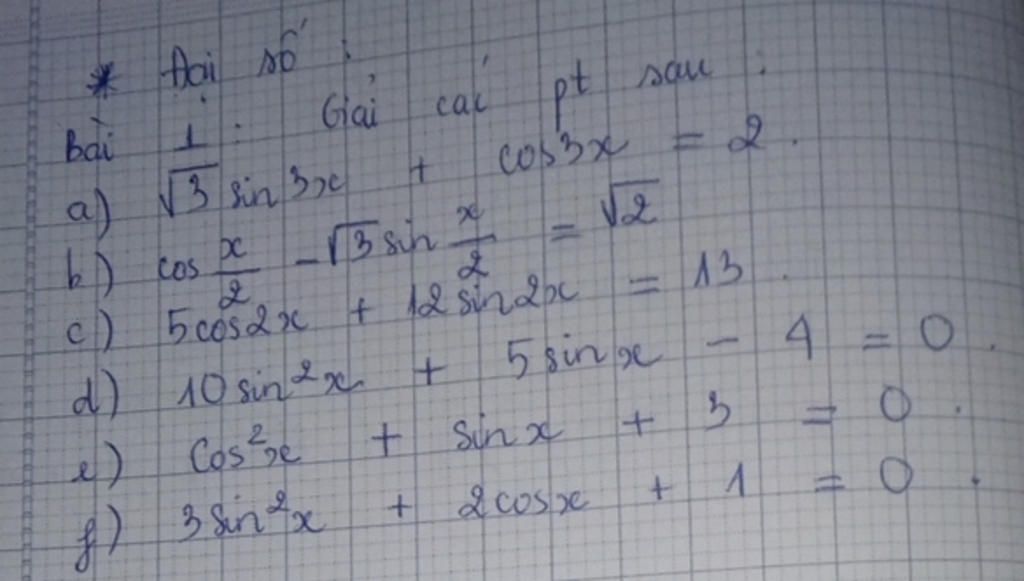 * Đại số :
Bài 1 : Giải các pt sau :
a) √3 sin 3x + cos3x = 2 .
b) cos x/2 - √3 sin x/2 = √2
c) 5cos2x + 12sin2x = 13 .
d) 10sin²x + 5sinx - 4 = 0 .
e) Cos²x + sinx + 3 = 0 .
f) 3sin²x + 2cosx + 1 = 0 .